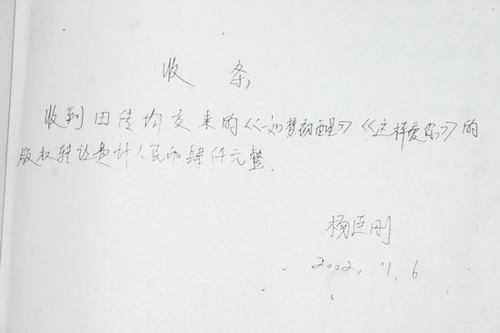 收条
收到田传均交来的《一如梦初醒》《这样爱你》的
版权转让费计人民币肆仟元整.
杨臣刚
2002. 11. 6